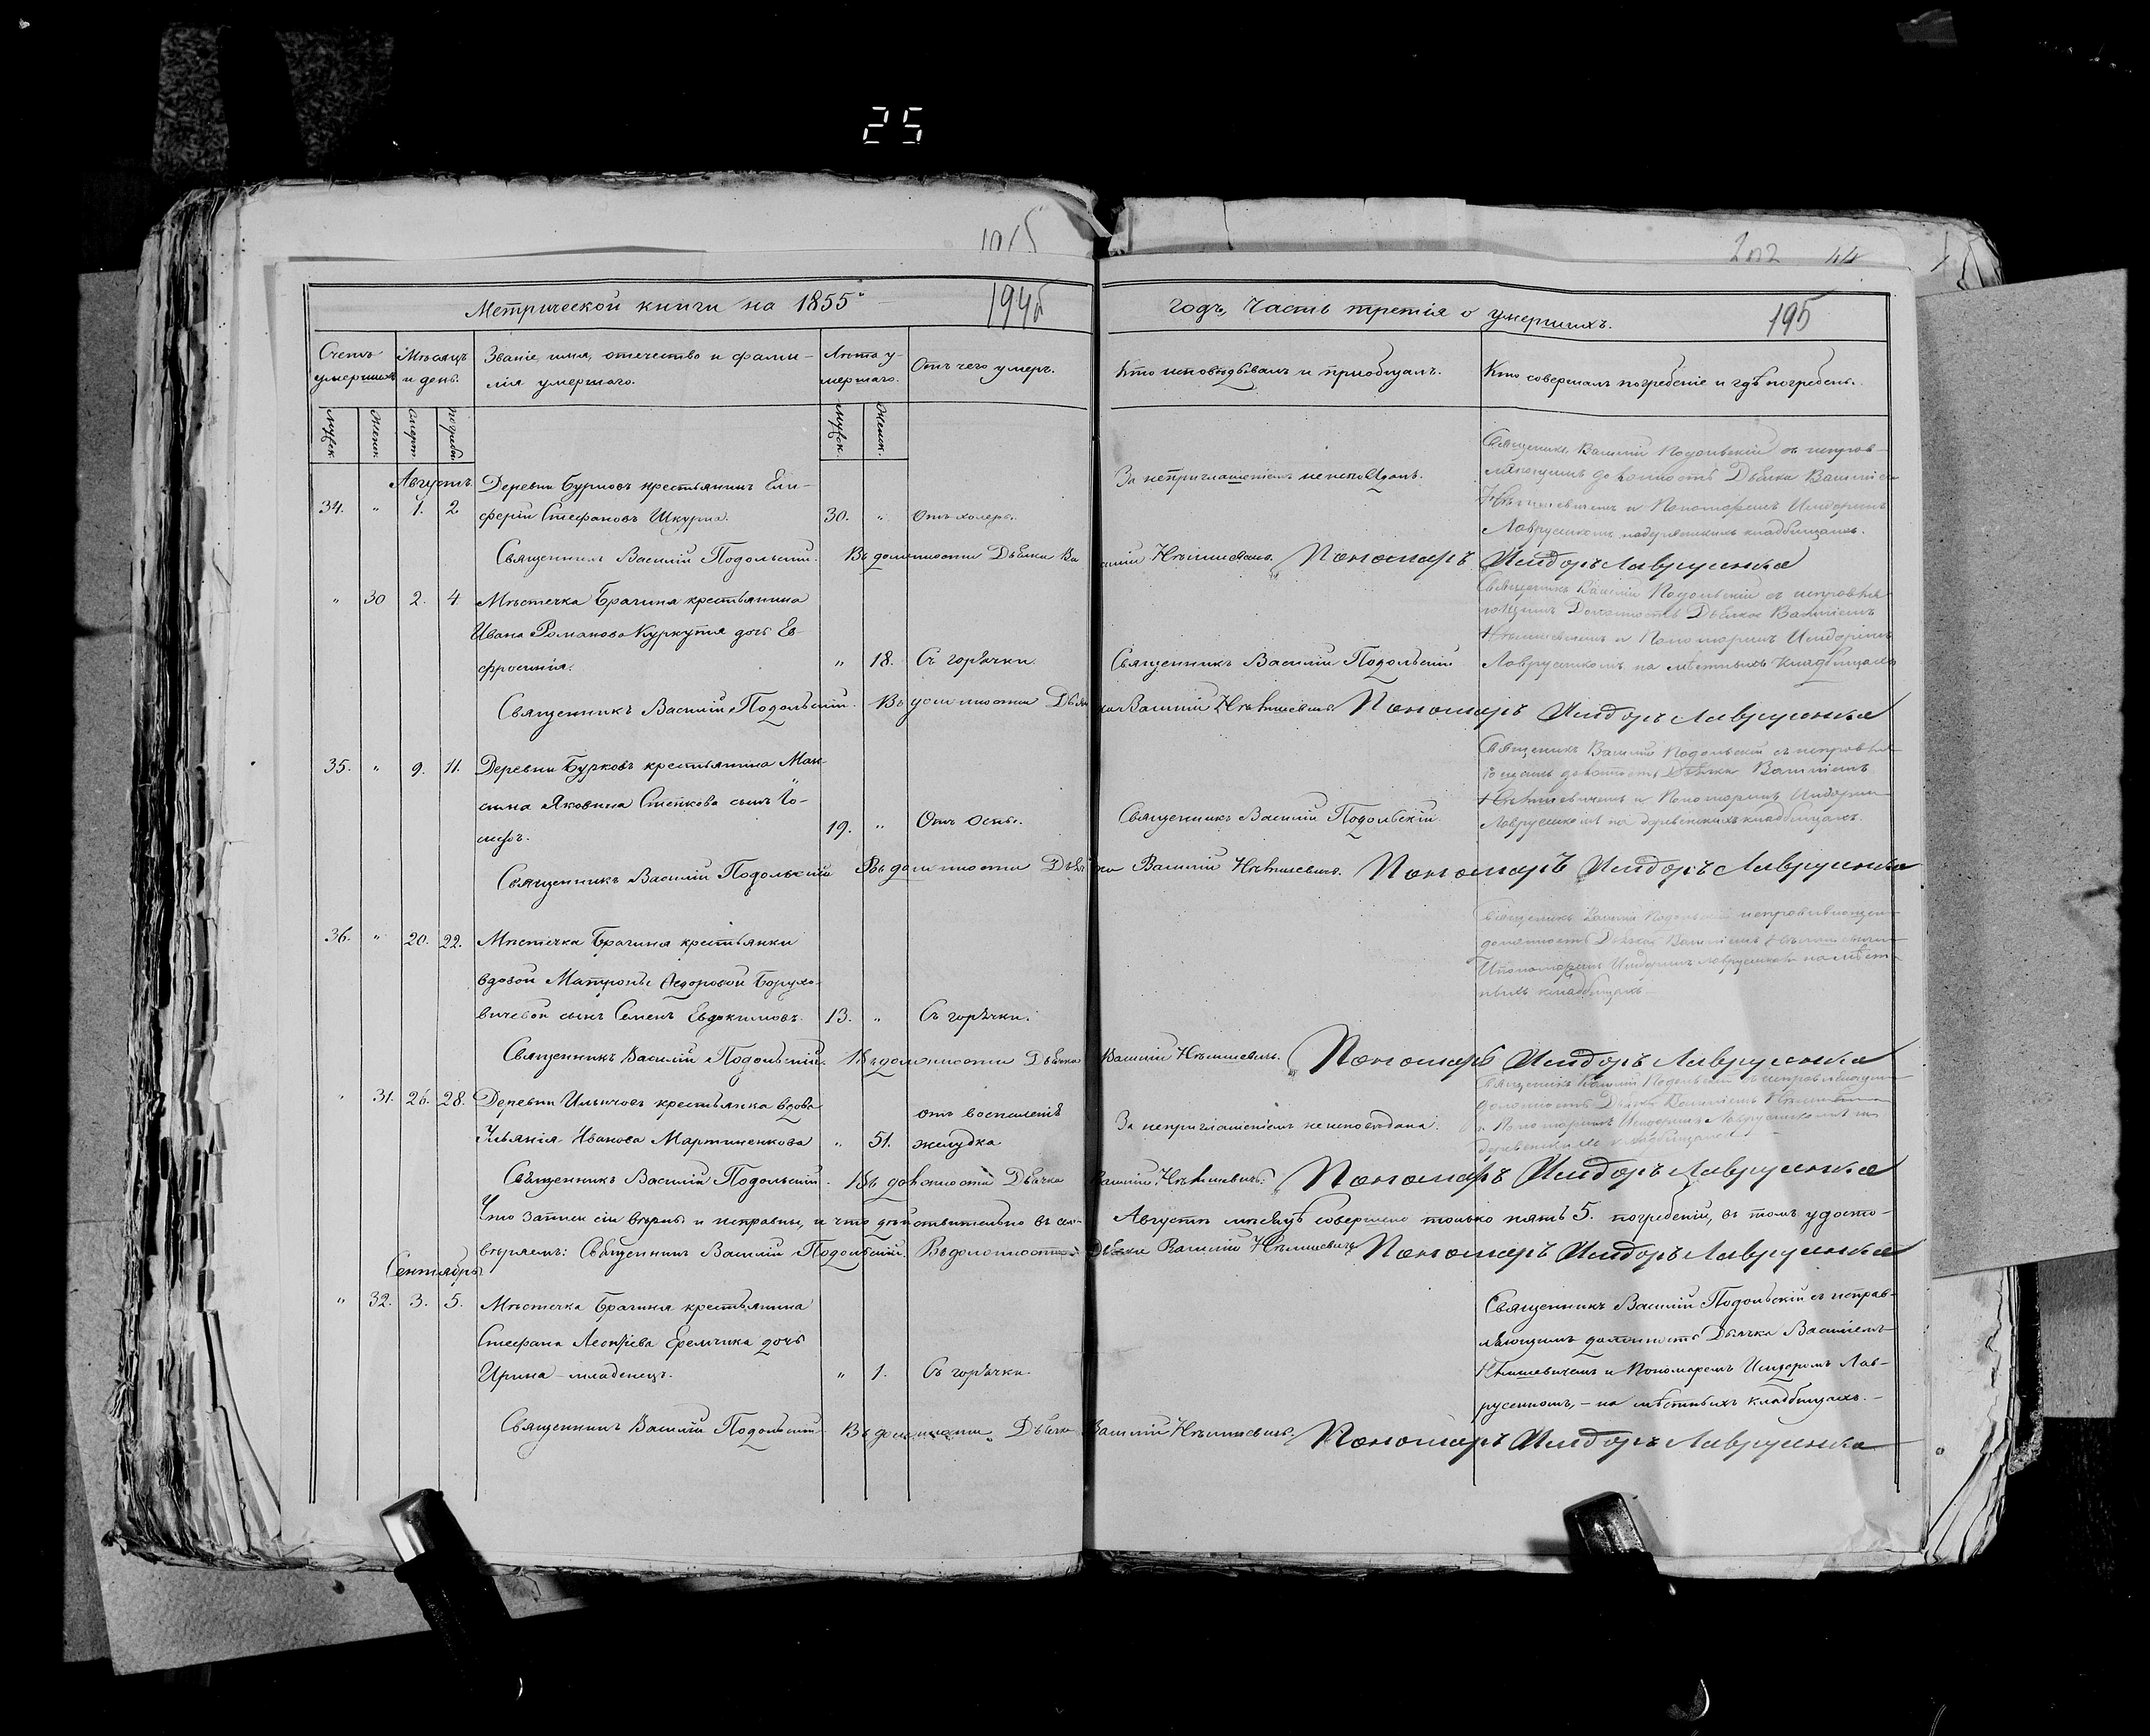 25
1015
202 44
Метрической книги на 1855й
194
годъ, Часть третія о умершихъ.
195
Счетъ умершихъ
Мѣсяцъ и день.
Званіе, имя, отечество и фами-
лія умершаго.
Лѣта у-
мершаго.
Отъ чего умеръ.
Кто исповѣдывалъ и пріобщалъ.
Кто совершалъ погребеніе и гдѣ погребены.
Мужск. Женск. Смерт. Погреб.
Мужск. Женск.
Августъ.
Деревни Бурковъ крестьянинъ Ели-
34. " 1. 2. ферій Стефановъ Шкурка. 30. " Отъ холеры.
За неприглашеніемъ неисповѣданъ.
Священникъ Василій Подольскій съ исправ-
ляющимъ должность Дьячка Василіем
Нѣмшевичемъ и Пономаремъ Исидоромъ
Лавруенкомъ кладбищахъ.
Священникъ Василій Подольскій. Въ должности Дьячка Василій Нѣмшевичъ. Пономаръ Исидоръ Лавруенко
" 30 2. 4 Мѣстечка Брагина крестьянина
Ивана Романова Куркутя дочь Ев-
фросинія. " 18. Съ горячки.
Священникъ Василій Подольскій
Священникъ Василій Подольскій съ исправля-
ющимъ Должность Дьячка Василіемъ
Нѣмшевичемъ и Пономаремъ Исидоромъ
Лавруенкомъ, на мѣстныхъ Кладбищахъ
Священникъ Василій Подольскій. Въ должности Дьячка Василій Нѣмшевичъ Пономаръ Исидоръ Лавруенко
35. " 9. 11. Деревни Бурковъ крестьянина Мак-
сима Яковина Степкова сынъ Іо-
сифъ. 19. " Отъ Оспы.
Священникъ Василій Подольскій.
Священникъ Василій Подольскій съ исправля-
ющимъ должность Дьячка Василіемъ
Нѣмшевичемъ и Пономаремъ Исидоромъ
Лавруенкомъ на деревенскихъ кладбищахъ.
Священникъ Василій Подольскій Въ должности Дьячка Василій Нѣмшевичъ. Пономаръ Исидоръ Лавруенко
36. " 20. 22. Мѣстечка Брагина крестьянки
вдовой Матроны Ѳедоровой Борухо-
вичевой сынъ Семенъ Евдокимовъ. 13. " Съ горячки.
Священникъ Василій Подольскій исправляющимъ
должность Дьячка Василіемъ Нѣмшевичемъ
И пономаремъ Исидоромъ Лавруенкомъ на мѣст-
ныхъ кладбищахъ
Священникъ Василій Подольскій. Въ должности Дьячка Василій Нѣмшевичъ. Пономаръ Исидоръ Лавруенко
" 31. 26. 28. Деревни Ильичовъ крестьянка вдова
Ульянія Иванова Мартиненкова " 51. отъ воспаленія
желудка
За неприглашеніемъ неисповѣдана.
Священникъ Василій Подольскій съ исправляющим
должность Дьячка Василіемъ Нѣмшевичемъ
и Пономаремъ Исидоромъ Лавруенкомъ на
деревенскихъ кладбищахъ
Священникъ Василій Подольскій. Въ должности Дьячка Василій Нѣмшевичъ. Пономаръ Исидоръ Лавруенко
Что записи сіи вѣрны и исправны, и что дѣйствительно въ семъ Августѣ мѣсяцѣ совершено только пять 5. погребеній, въ томъ удосто-
вѣряемъ: Священникъ Василій Подольскій. Въ должности Дьячка Василій Нѣмшевичъ Пономаръ Исидоръ Лавруенко
Сентябрь
" 32. 3. 5. Мѣстечка Брагина крестьянина
Стефана Леонтіева Еремчика дочь
Ирина – младенецъ. " 1. Съ горячки.
Священникъ Василій Подольскій съ исправ-
ляющимъ должность Дьячка Василіемъ
Нѣмшевичемъ и Пономаремъ Исидоромъ Лав-
руенкомъ, – на мѣстныхъ кладбищахъ. –
Священникъ Василій Подольскій Въ должности Дьячка Василій Нѣмшевичъ. Пономаръ Исидоръ Лавруенко